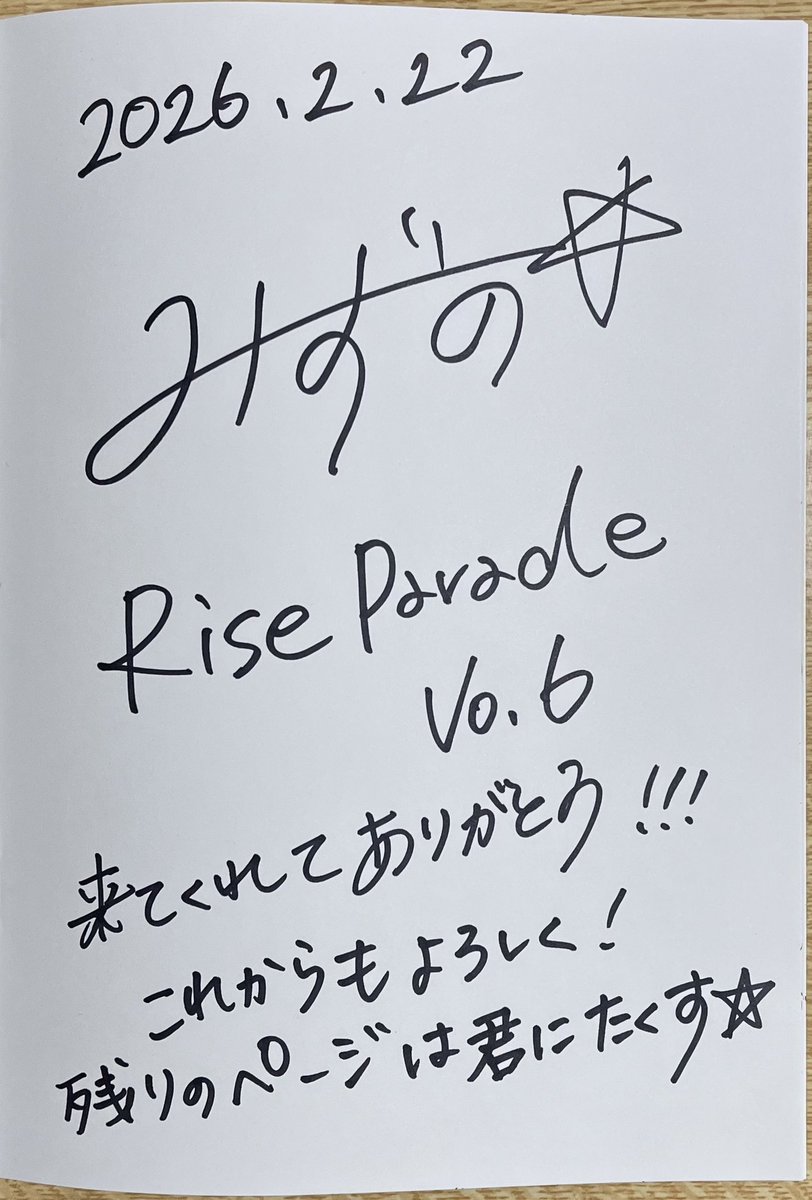 2026.2.22
みずの☆
Rise Parade
Vo.6
来てくれてありがとう!!!
これからもよろしく!
残りのページは君にたくす☆